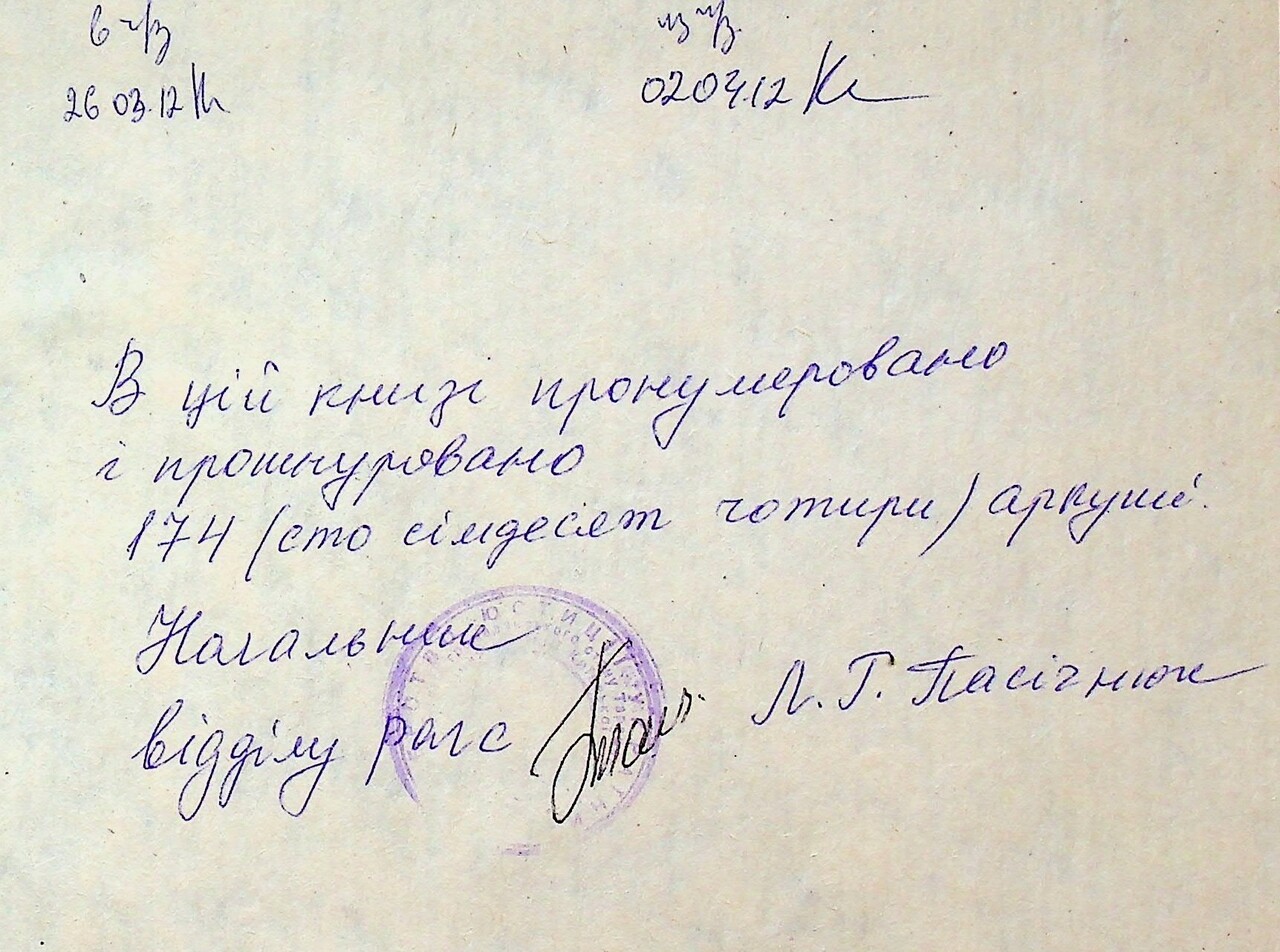 26 03.12
02 04.12
В цій книзі пронумеровано
і прошнуровано
174 (сто сімдесят чотири) аркуші.
Начальник
відділу рагс Л. Г. Пасічнюк
ЮСТИЦ